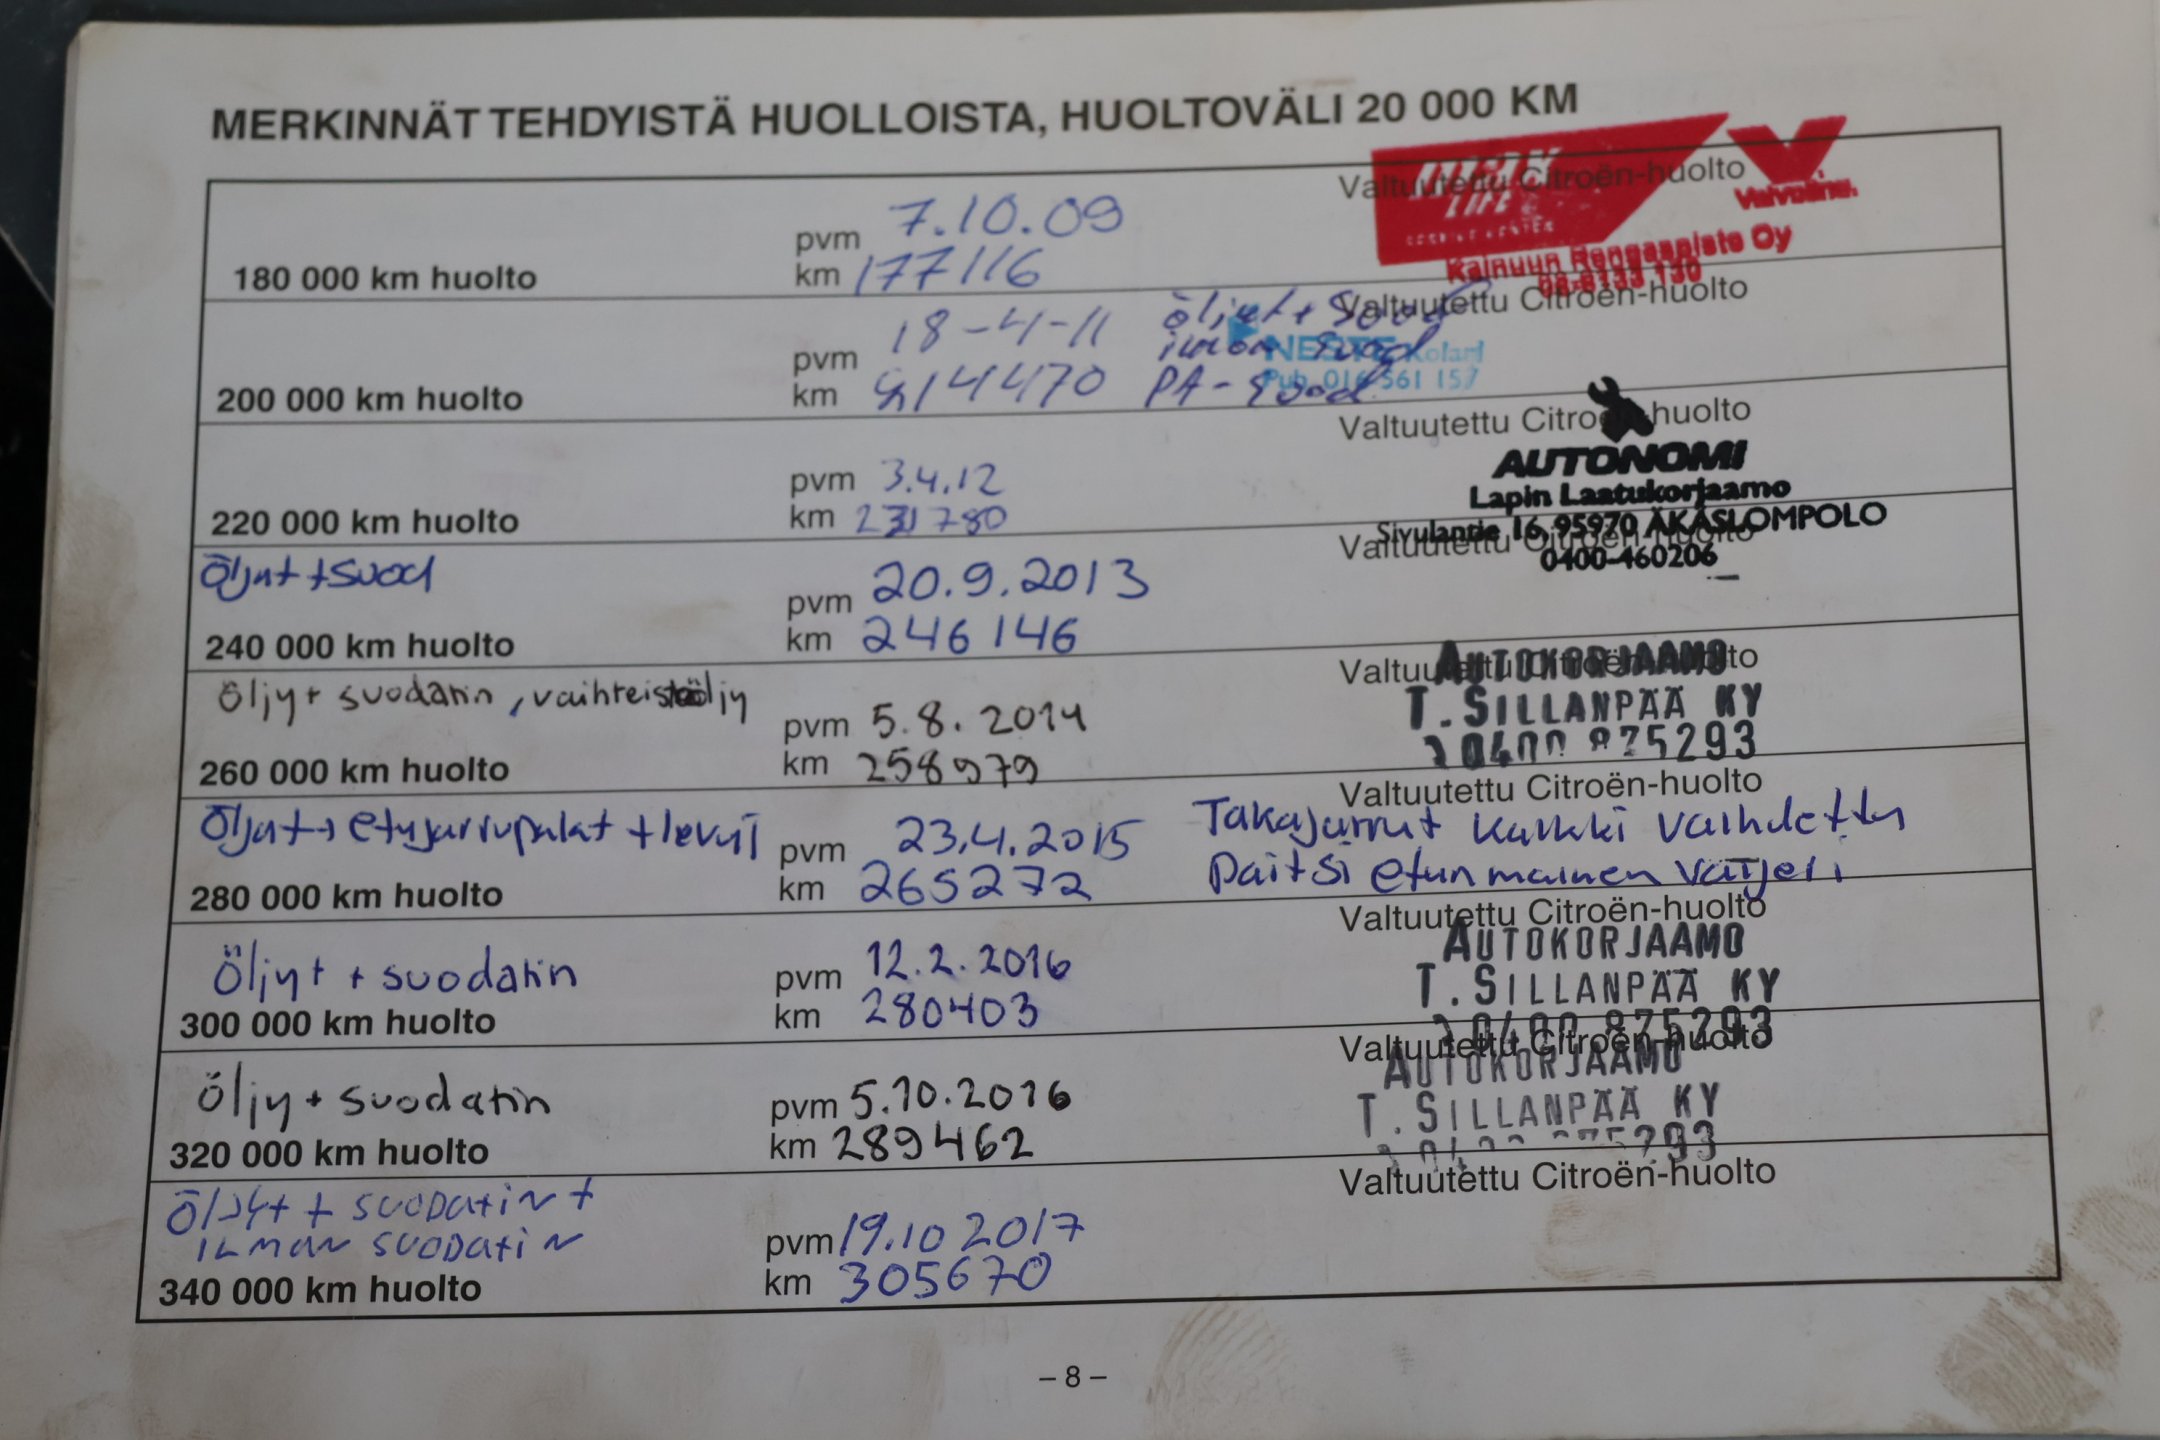 MERKINNÄT TEHDYISTÄ HUOLLOISTA, HUOLTOVÄLI 20 000 KM
Valtuutettu Citroën-huolto
LIFE
Valvoline.
pvm 7.10.09
180 000 km huolto
km 177116
Kainuun Rengaspiste Oy
08-6133 130
Valtuutettu Citroën-huolto
pvm 18-4-11 öljyt + Suod
ilman Suod
NESTE Kolari
200 000 km huolto
km 214470 PA-Suod
Puh. 016 561 157
Valtuutettu Citroën-huolto
AUTONOMI
Lapin Laatukorjaamo
pvm 3.4.12
220 000 km huolto
km 231780
Sivulantie 16, 95970 ÄKÄSLOMPOLO
Valtuutettu Citroën-huolto
0400-460206
Öljyt + suod
pvm 20.9.2013
240 000 km huolto
km 246 146
Valtuutettu Citroën-huolto
AUTOKORJAAMO
T. SILLANPÄÄ KY
0400 875293
Öljy + suodatin, vaihteistoöljy
pvm 5.8.2014
260 000 km huolto
km 258979
Valtuutettu Citroën-huolto
Öljyt + etujarrupalat + levyt
pvm 23.4.2015 Takajarrut kaikki vaihdettu
280 000 km huolto
km 265272 paitsi etummainen vaijeri
Valtuutettu Citroën-huolto
AUTOKORJAAMO
T. SILLANPÄÄ KY
0400 875293
Öljyt + suodatin
pvm 12.2.2016
300 000 km huolto
km 280403
Valtuutettu Citroën-huolto
AUTOKORJAAMO
T. SILLANPÄÄ KY
Öljy + suodatin
pvm 5.10.2016
320 000 km huolto
km 289462
Valtuutettu Citroën-huolto
ÖlJyt + SUODAtIN +
ILMAN SUODAtIN
pvm 19.10 2017
340 000 km huolto
km 305670
– 8 –